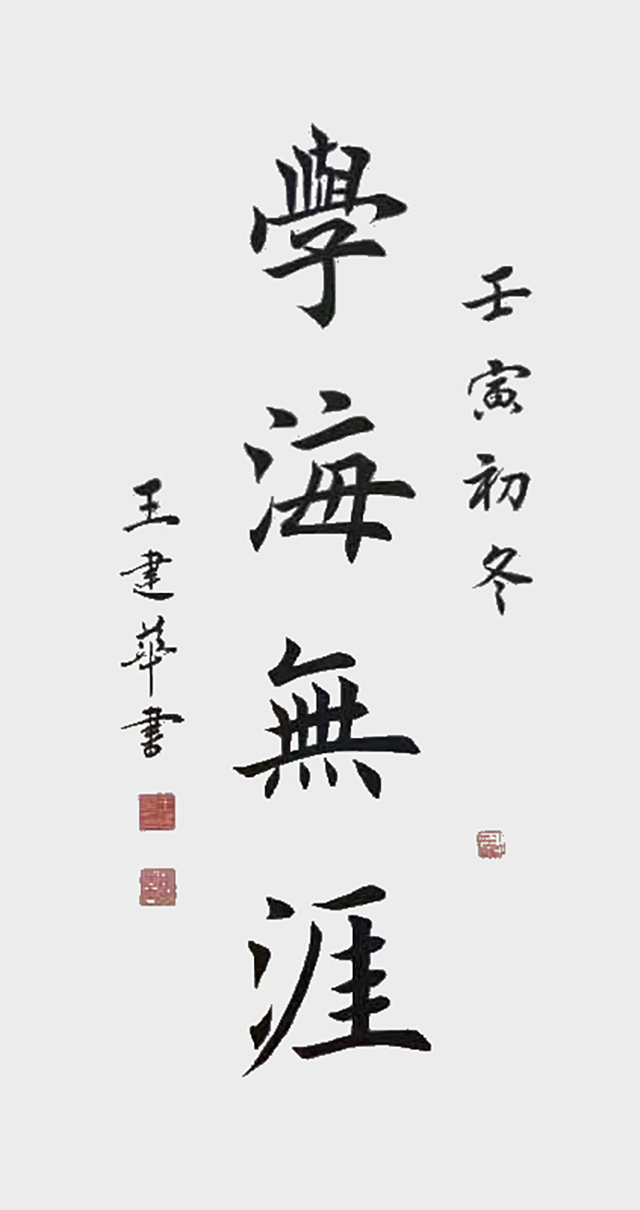 壬寅初冬
學海無涯
王建華書